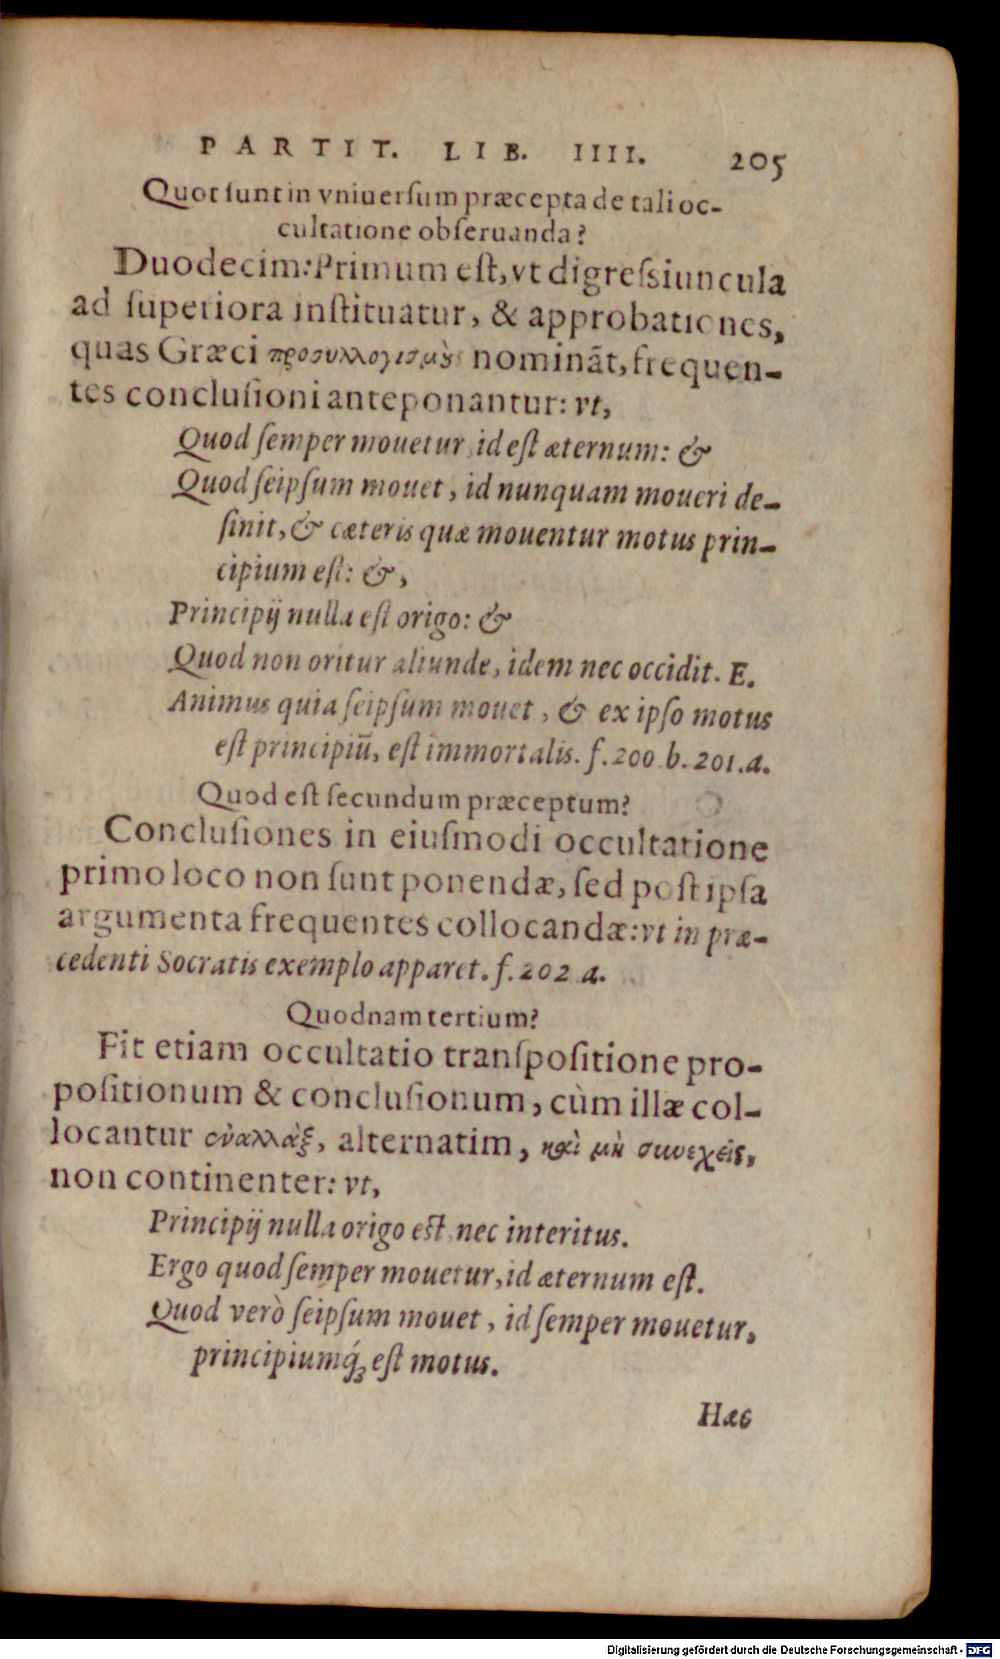 PARTIT. LIB. IIII. 205
Quot sunt in vniuersum præcepta de tali oc-
cultatione obseruanda?
Duodecim: Primum est, vt digressiuncula
ad superiora instituatur, & approbationes,
quas Græci προσυλλογισμοὺς nominãt, frequen-
tes conclusioni anteponantur: vt,
Quod semper mouetur, id est æternum: &
Quod seipsum mouet, id nunquam moueri de-
sinit, & cæteris quæ mouentur motus prin-
cipium est: &,
Principij nulla est origo: &
Quod non oritur aliunde, idem nec occidit. E.
Animus quia seipsum mouet, & ex ipso motus
est principiũ, est immortalis. f. 200. b. 201. a.
Quod est secundum præceptum?
Conclusiones in eiusmodi occultatione
primo loco non sunt ponendæ, sed post ipsa
argumenta frequentes collocandæ: vt in præ-
cedenti Socratis exemplo apparet. f. 202 a.
Quodnam tertium?
Fit etiam occultatio transpositione pro-
positionum & conclusionum, cùm illæ col-
locantur ἐναλλὰξ, alternatim, καὶ μὴ συνεχεῖς,
non continenter: vt,
Principij nulla origo est, nec interitus.
Ergo quod semper mouetur, id æternum est.
Quod verò seipsum mouet, id semper mouetur,
principiumq́; est motus.
Hæc
Digitalisierung gefördert durch die Deutsche Forschungsgemeinschaft - DFG